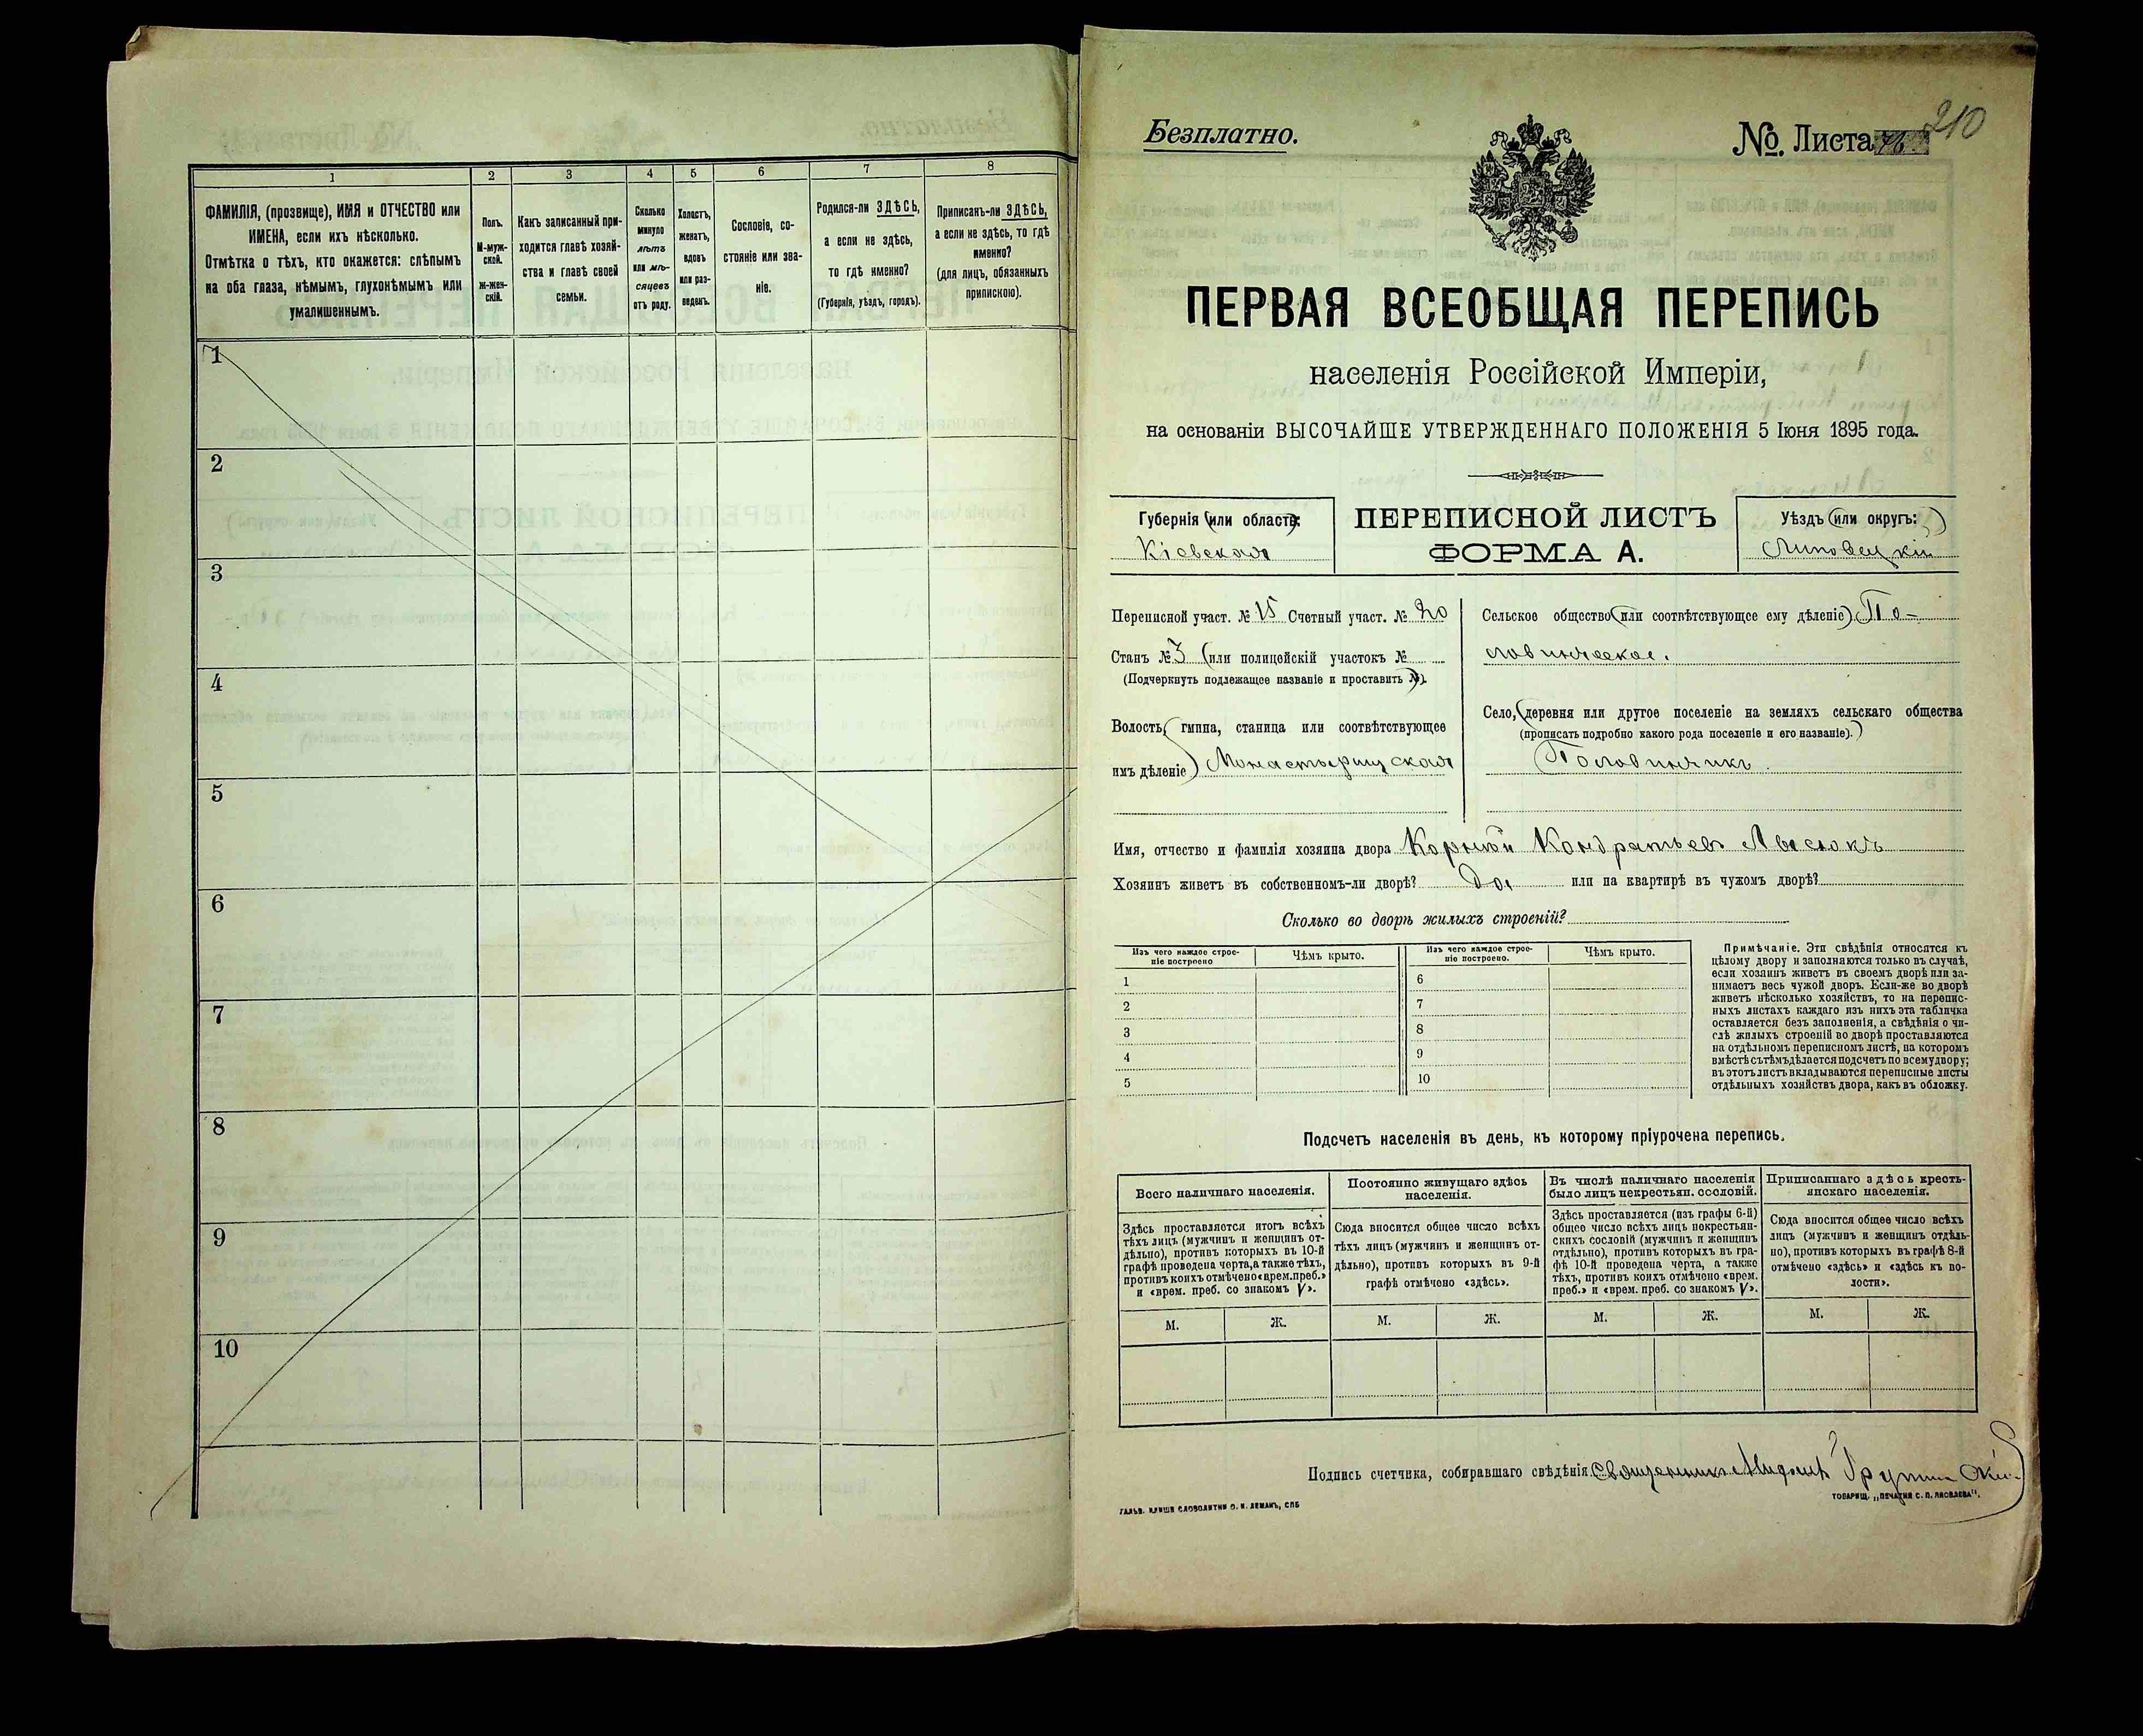 1
2
3
4
5
6
7
8
ФАМИЛІЯ, (прозвище), ИМЯ и ОТЧЕСТВО или
ИМЕНА, если ихъ нѣсколько.
Отмѣтка о тѣхъ, кто окажется: слѣпымъ
на оба глаза, нѣмымъ, глухонѣмымъ или
умалишеннымъ.
Полъ.
М-муж-
ской.
Ж-жен-
скій.
Какъ записанный при-
ходится главѣ хозяй-
ства и главѣ своей
семьи.
Сколько
минуло
лѣтъ
или мѣ-
сяцевъ
отъ роду.
Холостъ,
женатъ,
вдовъ
или раз-
веденъ.
Сословіе, со-
стояніе или зва-
ніе.
Родился-ли ЗДѢСЬ,
а если не здѣсь,
то гдѣ именно?
(Губернія, уѣздъ, городъ).
Приписанъ-ли ЗДѢСЬ,
а если не здѣсь, то гдѣ
именно?
(для лицъ, обязанныхъ
припискою).
1
2
3
4
5
6
7
8
9
10
210
Безплатно.
№ Листа
ПЕРВАЯ ВСЕОБЩАЯ ПЕРЕПИСЬ
населенія Россійской Имперіи,
на основаніи ВЫСОЧАЙШЕ УТВЕРЖДЕННАГО ПОЛОЖЕНІЯ 5 Іюня 1895 года.
Губернія (или область):
Кіевская
ПЕРЕПИСНОЙ ЛИСТЪ
ФОРМА А.
Уѣздъ (или округъ:)
Липовецкій
Переписной участ. № 15 Счетный участ. № 20
Станъ № 3 (или полицейскій участокъ №
(Подчеркнуть подлежащее названіе и проставить №).
Волость, (гмина, станица или соотвѣтствующее
имъ дѣленіе) Монастырищская
Сельское общество (или соотвѣтствующее ему дѣленіе) По-
ловинческое.
Село, (деревня или другое поселеніе на земляхъ сельскаго общества
(прописать подробно какого рода поселеніе и его названіе).)
Половинчикъ.
Имя, отчество и фамилія хозяина двора Корнѣй Кондратьевъ
Хозяинъ живетъ въ собственномъ-ли дворѣ? Да, или на квартирѣ въ чужомъ дворѣ?
Сколько во дворѣ жилыхъ строеній?
Изъ чего каждое строе-
ніе построено
Чѣмъ крыто.
Изъ чего каждое строе-
ніе построено.
Чѣмъ крыто.
1
2
3
4
5
6
7
8
9
10
Примѣчаніе. Эти свѣдѣнія относятся къ
цѣлому двору и заполняются только въ случаѣ,
если хозяинъ живетъ въ своемъ дворѣ или за-
нимаетъ весь чужой дворъ. Если-же во дворѣ
живетъ нѣсколько хозяйствъ, то на перепис-
ныхъ листахъ каждаго изъ нихъ эта табличка
оставляется безъ заполненія, а свѣдѣнія о чи-
слѣ жилыхъ строеній во дворѣ проставляются
на отдѣльномъ переписномъ листѣ, на которомъ
вмѣстѣ съ тѣмъ дѣлается подсчетъ по всему двору;
въ этотъ листъ вкладываются переписные листы
отдѣльныхъ хозяйствъ двора, какъ въ обложку.
Подсчетъ населенія въ день, къ которому пріурочена перепись.
Всего наличнаго населенія.
Постоянно живущаго здѣсь
населенія.
Въ числѣ наличнаго населенія
было лицъ некрестьян. сословій.
Приписаннаго здѣсь кресть-
янскаго населенія.
Здѣсь проставляется итогъ всѣхъ
тѣхъ лицъ (мужчинъ и женщинъ от-
дѣльно), противъ которыхъ въ 10-й
графѣ проведена черта, а также тѣхъ,
противъ коихъ отмѣчено «врем. преб.»
и «врем. преб. со знакомъ V».
Сюда вносится общее число всѣхъ
тѣхъ лицъ (мужчинъ и женщинъ от-
дѣльно), противъ которыхъ въ 9-й
графѣ отмѣчено «здѣсь».
Здѣсь проставляется (изъ графы 6-й)
общее число всѣхъ лицъ некрестьян-
скихъ сословій (мужчинъ и женщинъ
отдѣльно), противъ которыхъ въ гра-
фѣ 10-й проведена черта, а также
тѣхъ, противъ коихъ отмѣчено «врем.
преб.» и «врем. преб. со знакомъ V».
Сюда вносится общее число всѣхъ
лицъ (мужчинъ и женщинъ отдѣль-
но), противъ которыхъ въ графѣ 8-й
отмѣчено «здѣсь» и «здѣсь къ во-
лости».
М.
Ж.
М.
Ж.
М.
Ж.
М.
Ж.
Подпись счетчика, собиравшаго свѣдѣнія Священникъ
ГАЛЬВ. КЛИШЕ СЛОВОЛИТНИ О. И. ЛЕМАНЪ, СПБ
ТОВАРИЩ. „ПЕЧАТНЯ С. П. ЯКОВЛЕВА".